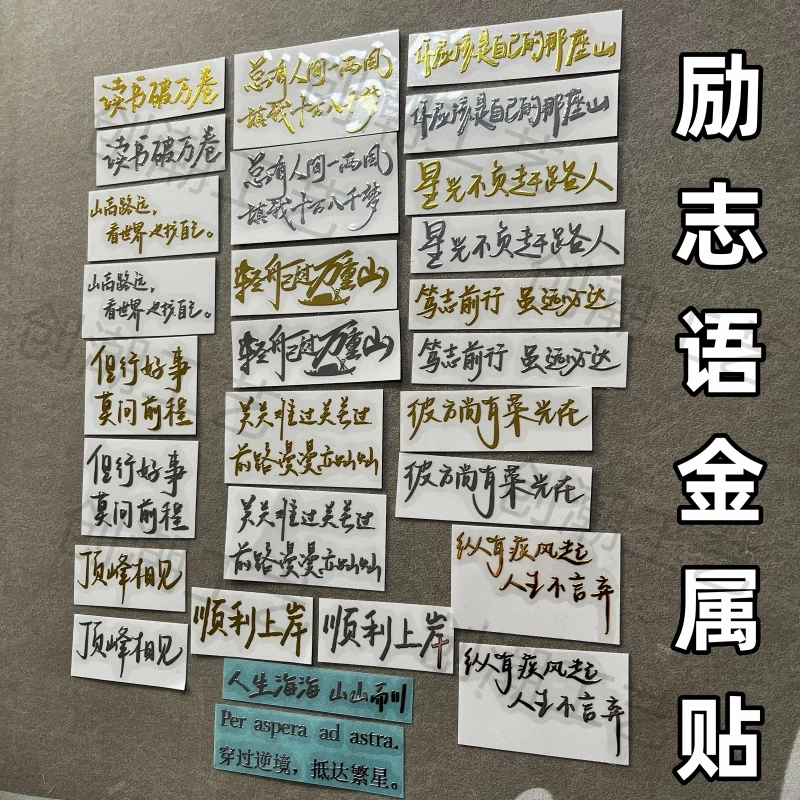 读书破万卷
读书破万卷
山高路远，
看世界 也找自己。
山高路远，
看世界 也找自己。
但行好事
莫问前程
但行好事
莫问前程
顶峰相见
顶峰相见
总有人间一两风
填我十万八千梦
总有人间一两风
填我十万八千梦
轻舟已过万重山
轻舟已过万重山
关关难过关关过
前路漫漫亦灿灿
关关难过关关过
前路漫漫亦灿灿
顺利上岸
顺利上岸
人生海海 山山而川
Per aspera ad astra.
穿过逆境，抵达繁星。
你应该是自己的那座山
你应该是自己的那座山
星光不负赶路人
星光不负赶路人
笃志前行 虽远必达
笃志前行 虽远必达
彼方尚有荣光在
彼方尚有荣光在
纵有疾风起
人生不言弃
纵有疾风起
人生不言弃
励志语金属贴